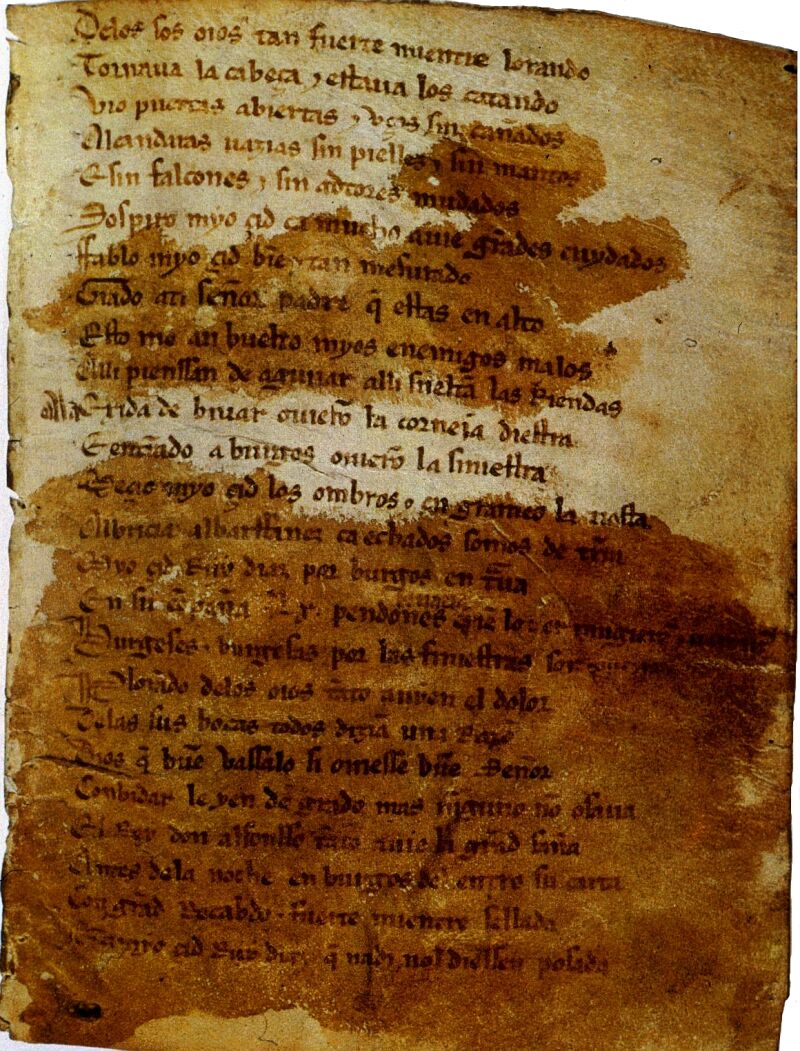 Delos sos oios tan fuerte mientre lorando
Tornaua la cabeça ⁊ estaua los catando
Vio puertas abiertas ⁊ vços sin cañados
Alcandaras uazias sin pielles ⁊ sin mantos
E sin falcones ⁊ sin adtores mudados
Sospiro myo çid ca mucho auie grãdes cuydados
Ffablo myo çid biẽ ⁊ tan mesurado
Grado ati señor padre q̃ estas en alto
Esto me an buelto myos enemigos malos
Alli pienssan de aguiiar alli sueltã las Riendas
Ala Exida de biuar ouierõ la corneia diestra
E entrãdo a burgos ouierõ la siniestra
Meçio myo çid los ombros ⁊ en grameo la tiesta
Albricia albarffanez ca echados somos de tr̃ra
Myo çid Ruy diaz por burgos en traua
En su cõpaña .Lx. pendones
Burgeses ⁊ burgesas por las finiestras son
Plorãdo delos oios tãto auyen el dolor
Delas sus bocas todos diziã una Razõ
Dios q̃ buẽ vassalo si ouiesse buẽ Señor
Conbidar le yen de grado mas ninguno nõ osaua
El Rey don alfonsso tãto auie la grãd saña
Antes dela noche en burgos del entro su carta
Con grãd Recabdo ⁊ fuerte mientre sellada
Q̃ a myo çid Ruy diaz q̃ nadi nol diessen posada